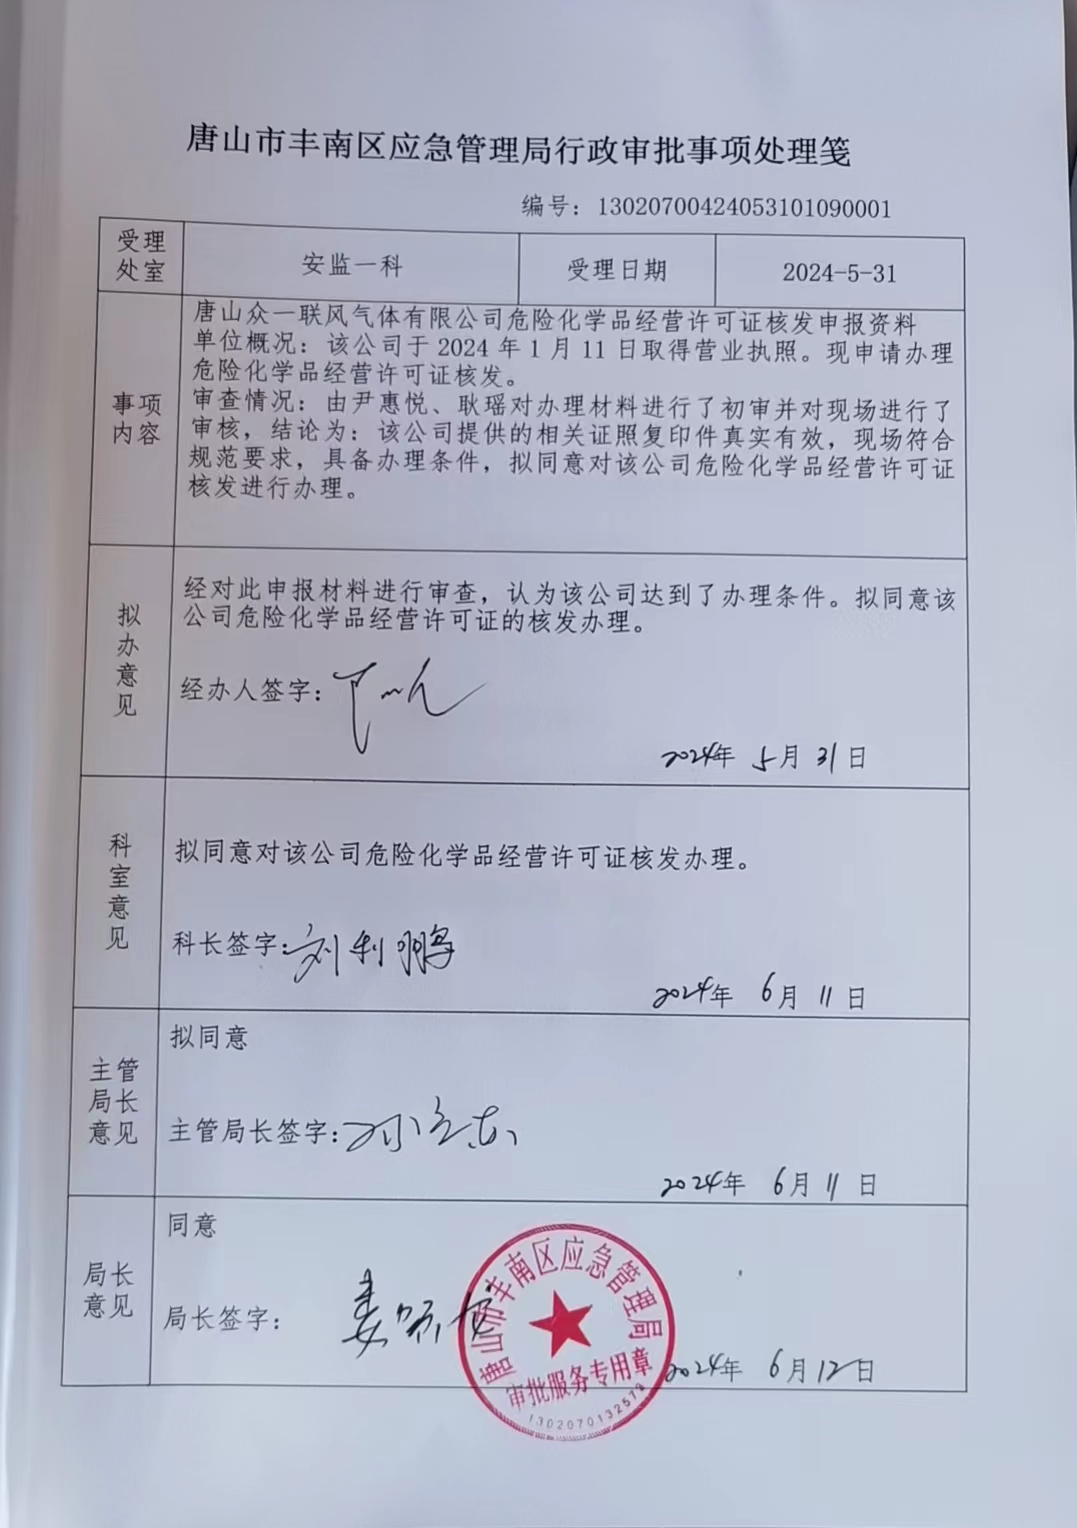 唐山市丰南区应急管理局行政审批事项处理笺
编号：13020700424053101090001
受理
处室
安监一科
受理日期
2024-5-31
事项
内容
唐山众一联风气体有限公司危险化学品经营许可证核发申报资料
单位概况：该公司于2024年1月11日取得营业执照。现申请办理
危险化学品经营许可证核发。
审查情况：由尹惠悦、耿瑶对办理材料进行了初审并对现场进行了
审核，结论为：该公司提供的相关证照复印件真实有效，现场符合
规范要求，具备办理条件，拟同意对该公司危险化学品经营许可证
核发进行办理。
拟
办
意
见
经对此申报材料进行审查，认为该公司达到了办理条件。拟同意该
公司危险化学品经营许可证的核发办理。
经办人签字：
2024年 5月 31日
科
室
意
见
拟同意对该公司危险化学品经营许可证核发办理。
科长签字：刘利鹏
2024年 6月 11日
主管
局长
意见
拟同意
主管局长签字：
2024年 6月 11日
局长
意见
同意
局长签字：
2024年 6月 12日
唐山市丰南区应急管理局
审批服务专用章